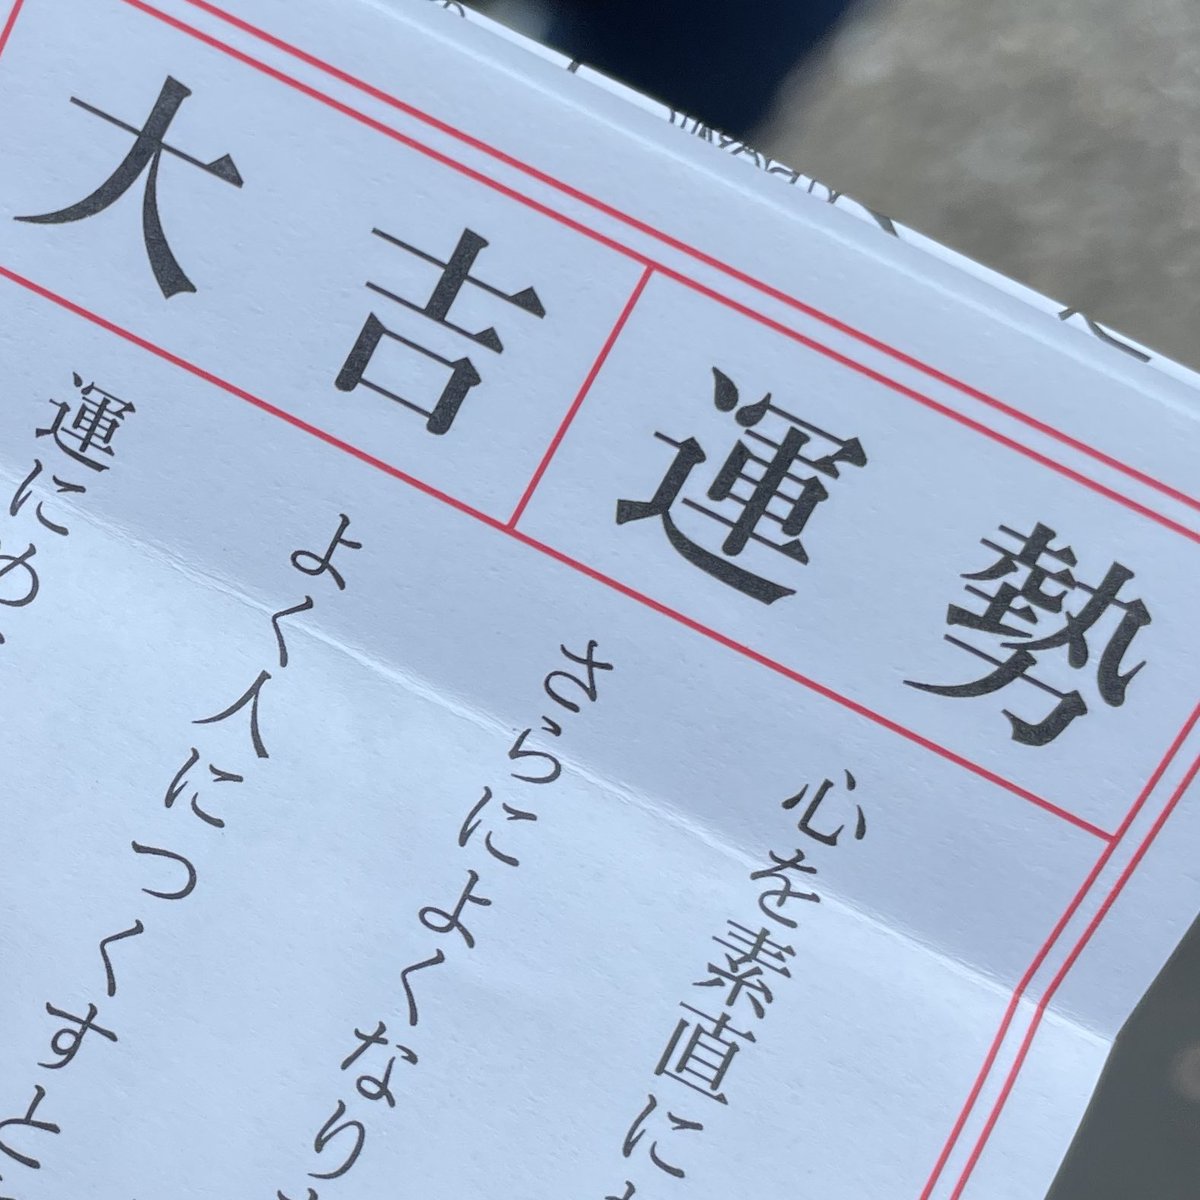 運勢
大吉
心を素直に
さらによくなり
よく人につくすと
運にめ